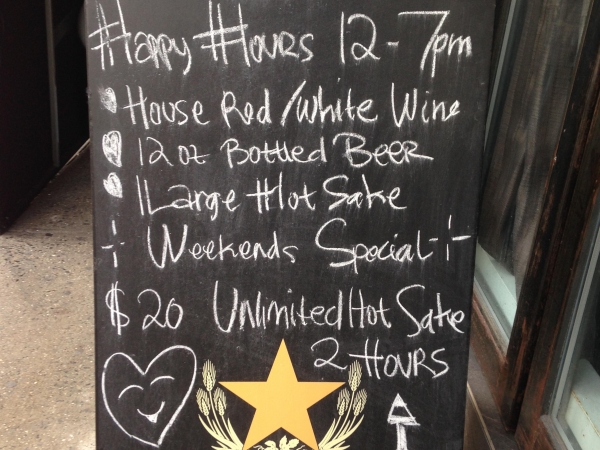 Happy Hours 12-7pm
House Red/White Wine
12 oz Bottled Beer
1 Large Hot Sake
Weekends Special
$20 Unlimited Hot Sake
2 Hours